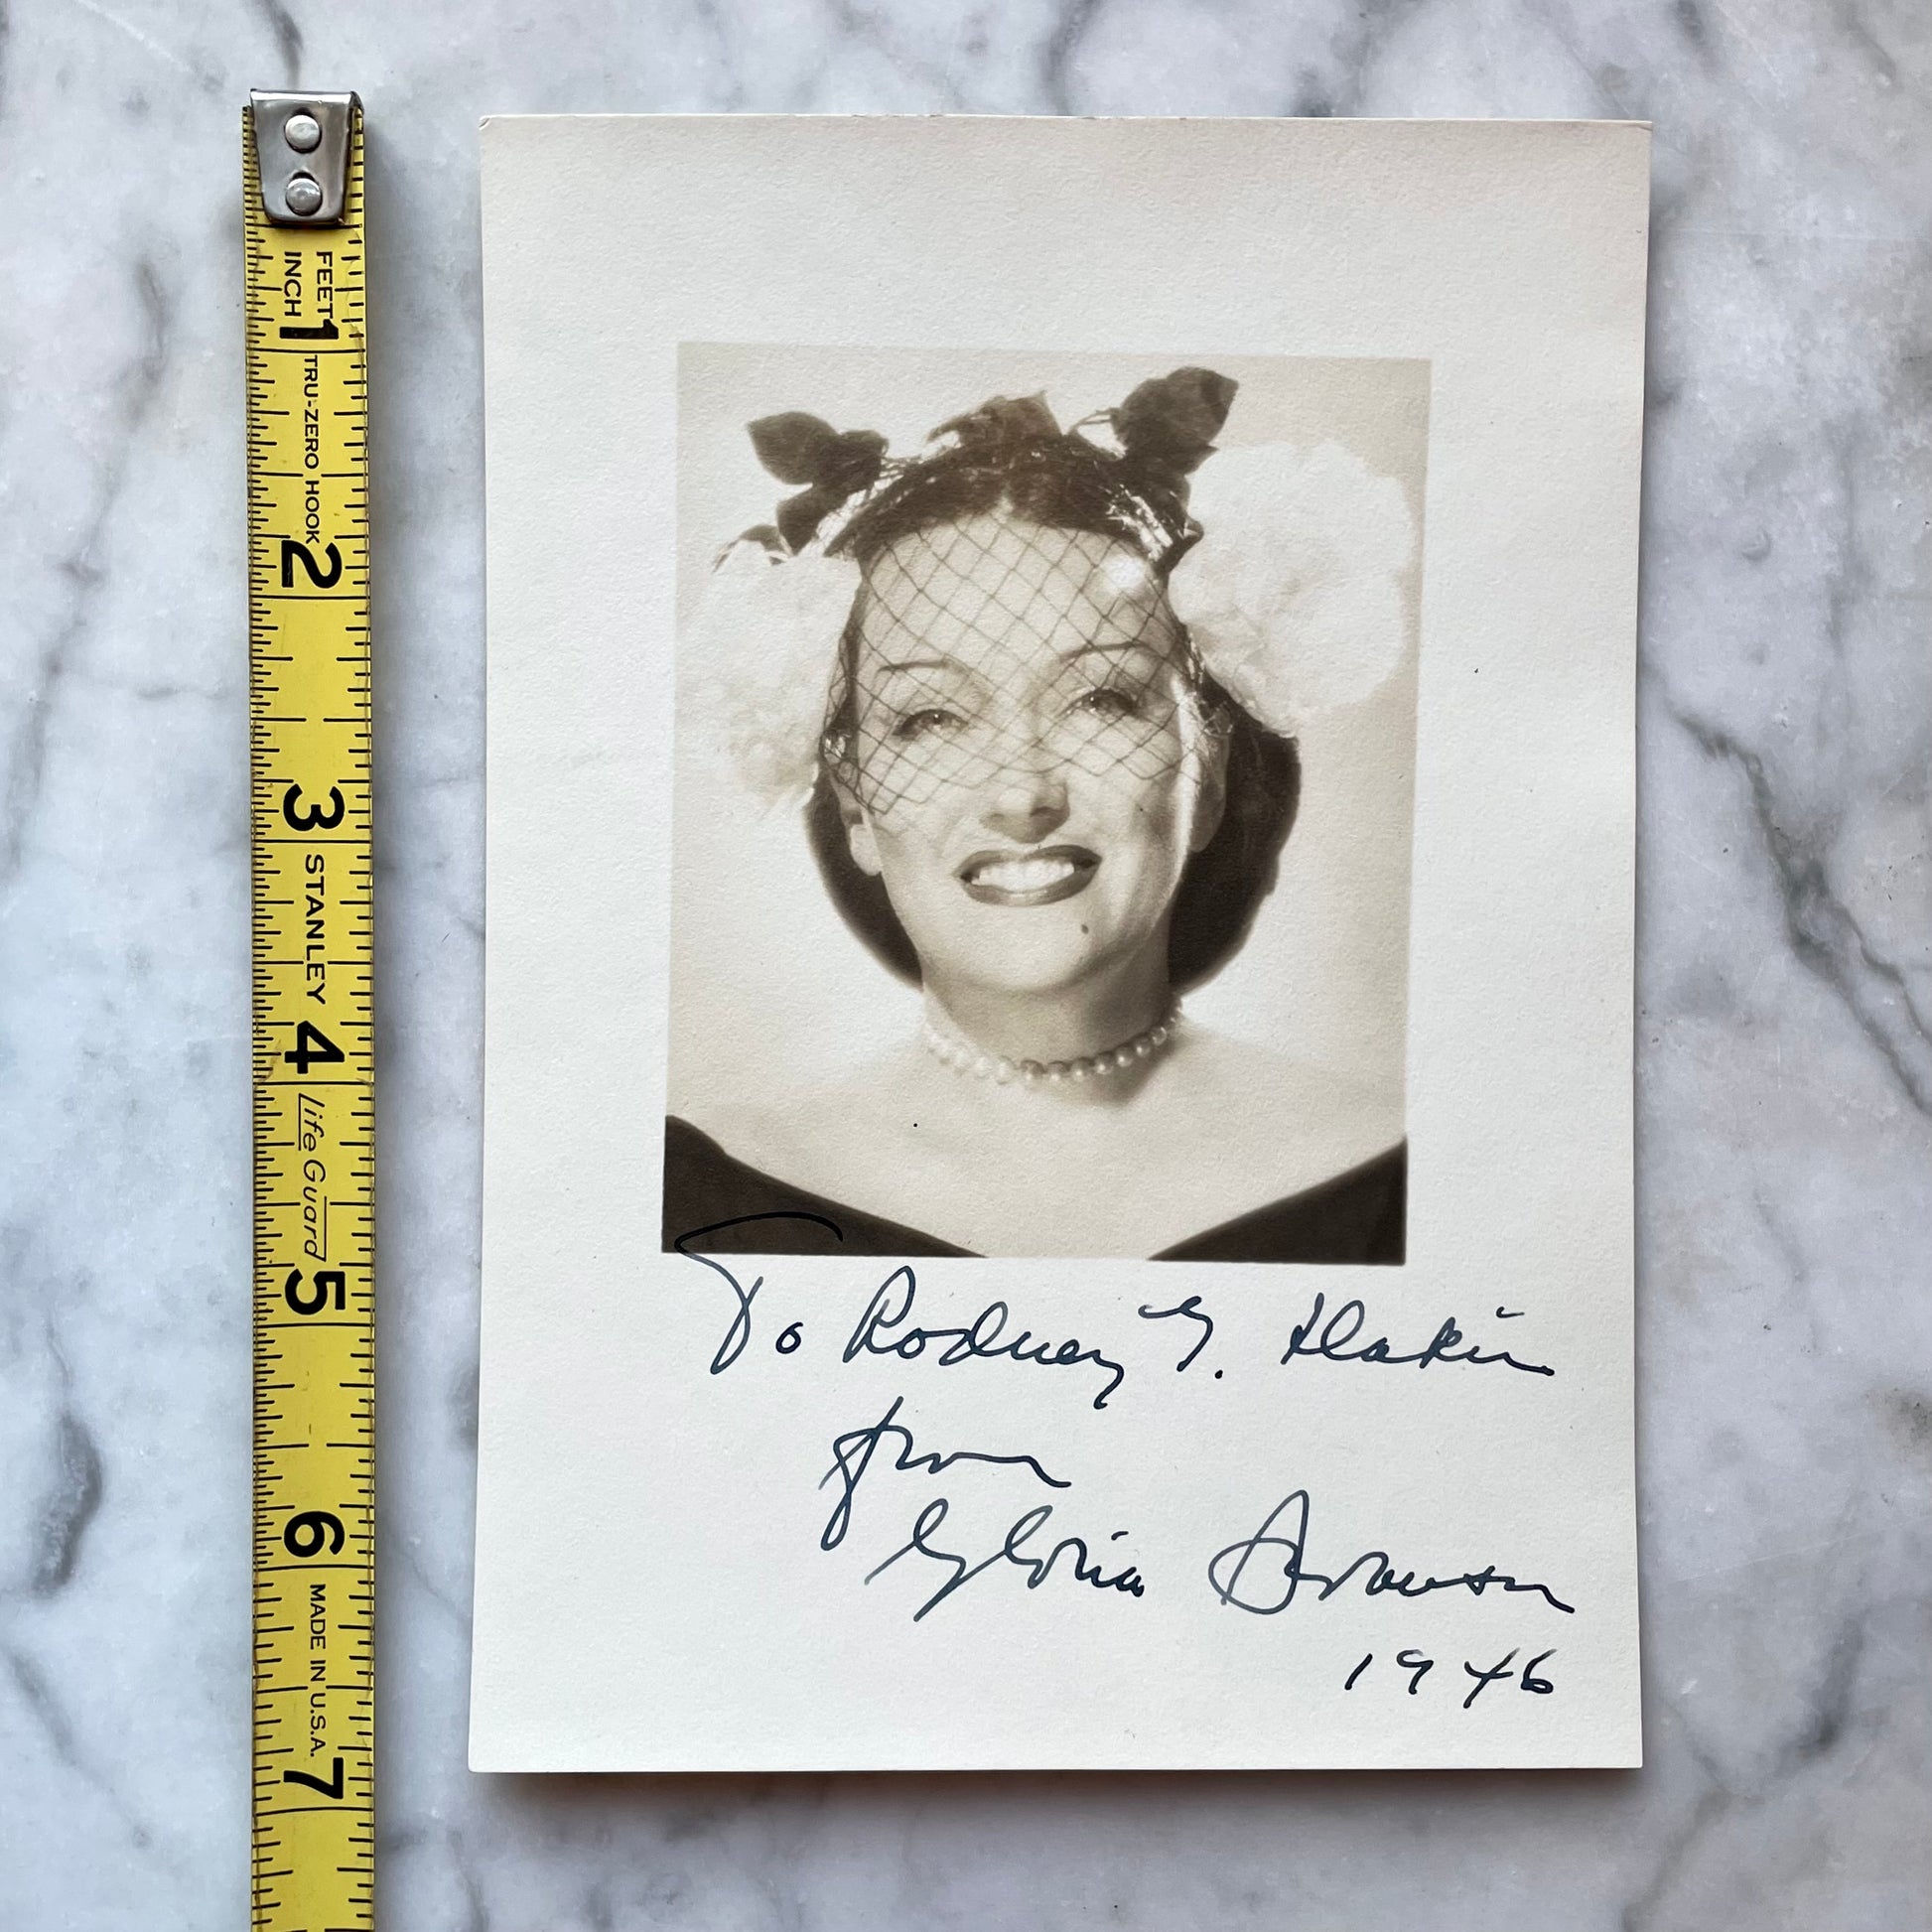 FEET
INCH
1
TRU-ZERO HOOK
2
3
STANLEY
4
Life Guard
5
6
MADE IN U.S.A.
7
To Rodney G.
from
Gloria Swanson
1946